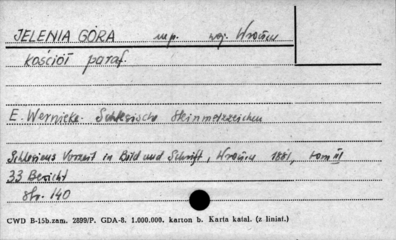 JELENIA GÓRA mp. woj. Wrocław
kościół paraf.
E. Wernicke. Schlesische Steinmetzzeichen
Schlesiens Vorzeit in Bild und Schrift, Wrocław 1881, tom III
33 Bericht
str. 140
CWD B-15b.zam. 2899/P. GDA-8. 1.000.000. karton b. Karta katal. (z liniat.)